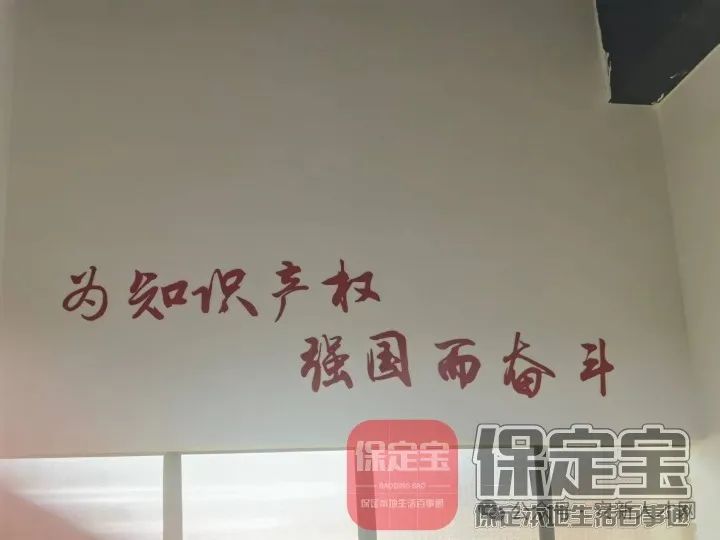 为知识产权
强国而奋斗
保定宝
BAODING BAO
保定本地生活百事通
保定宝
保定本地生活百事通